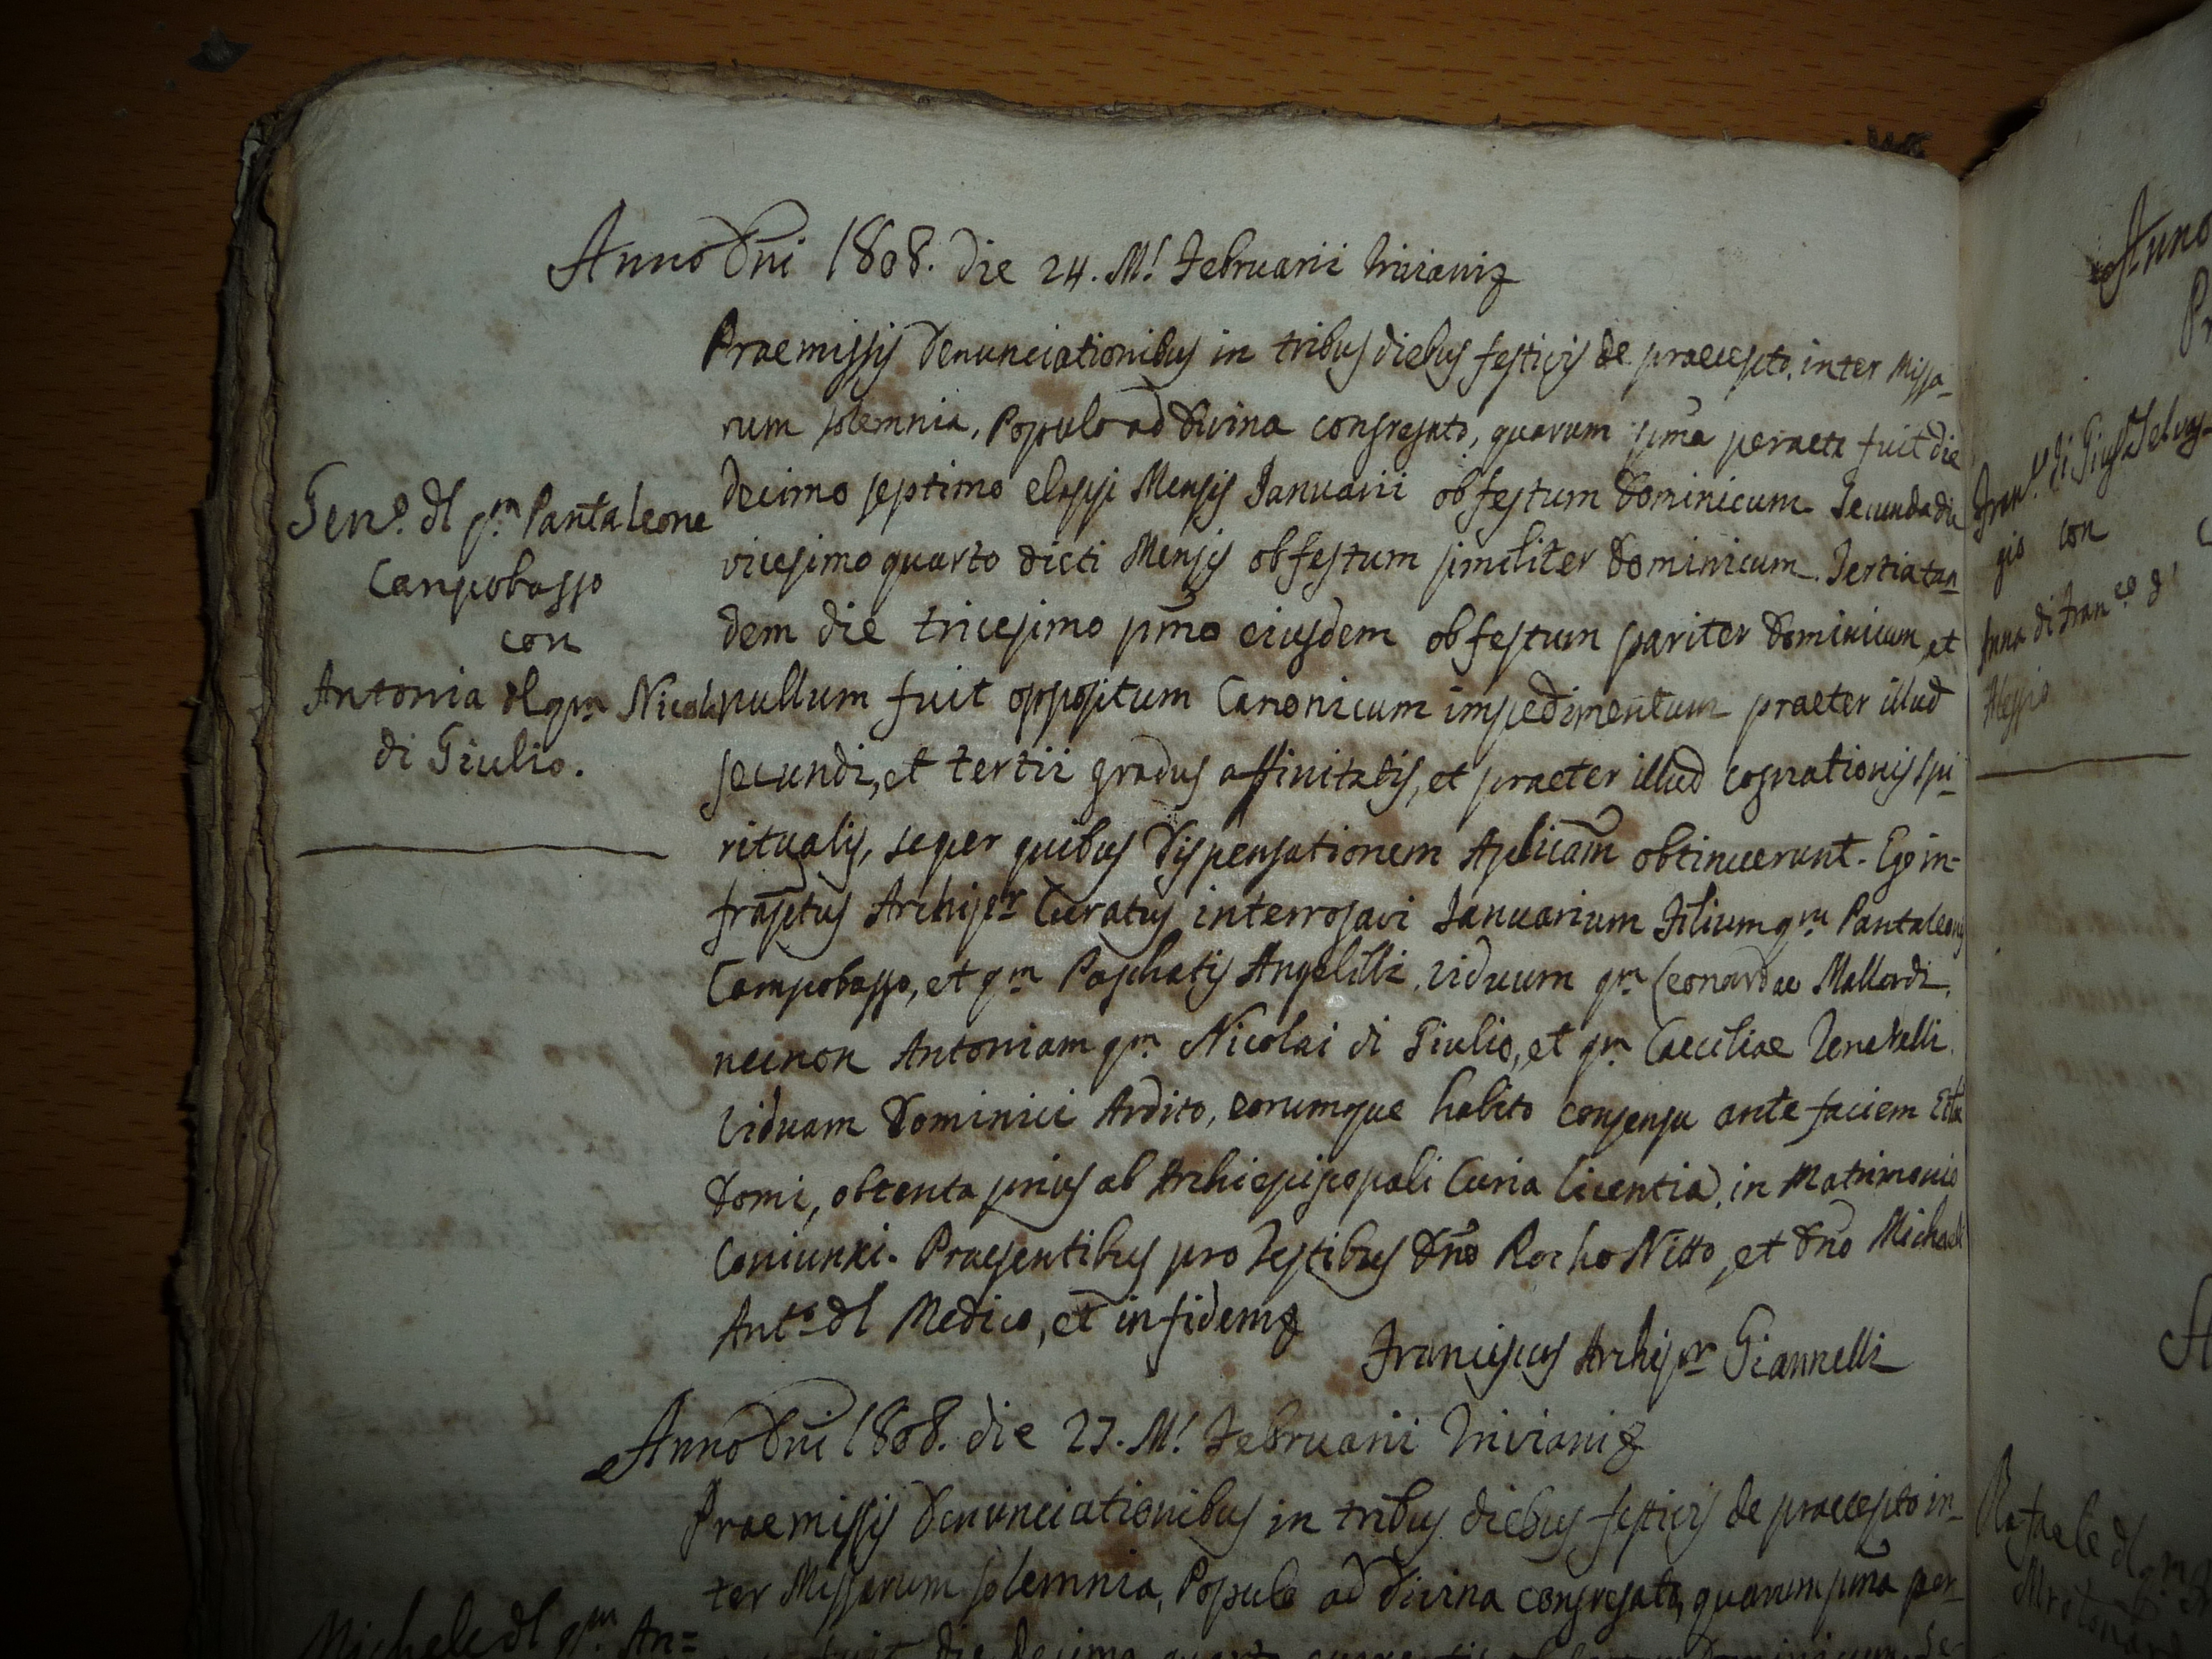 Anno Dñi 1808. die 24. M.s Februarii Triviani
Praemissis Denunciationibus in tribus diebus festivis de praecepto, inter Missa-
rum solemnia, Populo ad Divina congregato, quarum pma peracta fuit die
Decimo septimo elapsi Mensis Januarii ob festum Dominicum. Secunda die
vicesimo quarto dicti Mensis ob festum similiter Dominicum. Tertia tan-
dem die tricesimo pmo eiusdem ob festum pariter Dominicum, et
nullum fuit oppositum Canonicum impedimentum praeter illud
secundi, et tertii gradus affinitatis, et praeter illud cognationis spi-
ritualis, super quibus Dispensationem Aplicam obtinuerunt. Ego in-
fraptus Archipr Curatus interrogavi Januarium Filium qm Pantaleonis
Campobasso, et qm Paschalis Angelilli, Viduum qm Leonardae Mallardi,
necnon Antoniam qm Nicolai di Giulio, et qm Caeciliae Venetelli
Viduam Dominici Ardito, eorumque habito consensu ante faciem
Domi, obtenta prius ab Archiepiscopali Curia licentia, in Matrimonio
Coniunxi. Praesentibus pro Testibus Dño Rocho Nitto, et Dño Michaele
Anto dl Medico, et in fidem
Franciscus Archipr Giannelli
Gen.o dl qm Pantaleone
Campobasso
con
Antonia dl qm Nicola
di Giulio.
Anno Dñi 1808. die 27. M.s Februarii Triviani
Praemissis Denunciationibus in tribus diebus festivis de praecepto in-
ter Missarum solemnia, Populo ad Divina congregato, quarum pma per-
Michele dl qm An=
fuit die Decima quarta
Anno
Fran.o di
gio con
Anna di Fran.co d'
Alessio
Rafaele dl qm